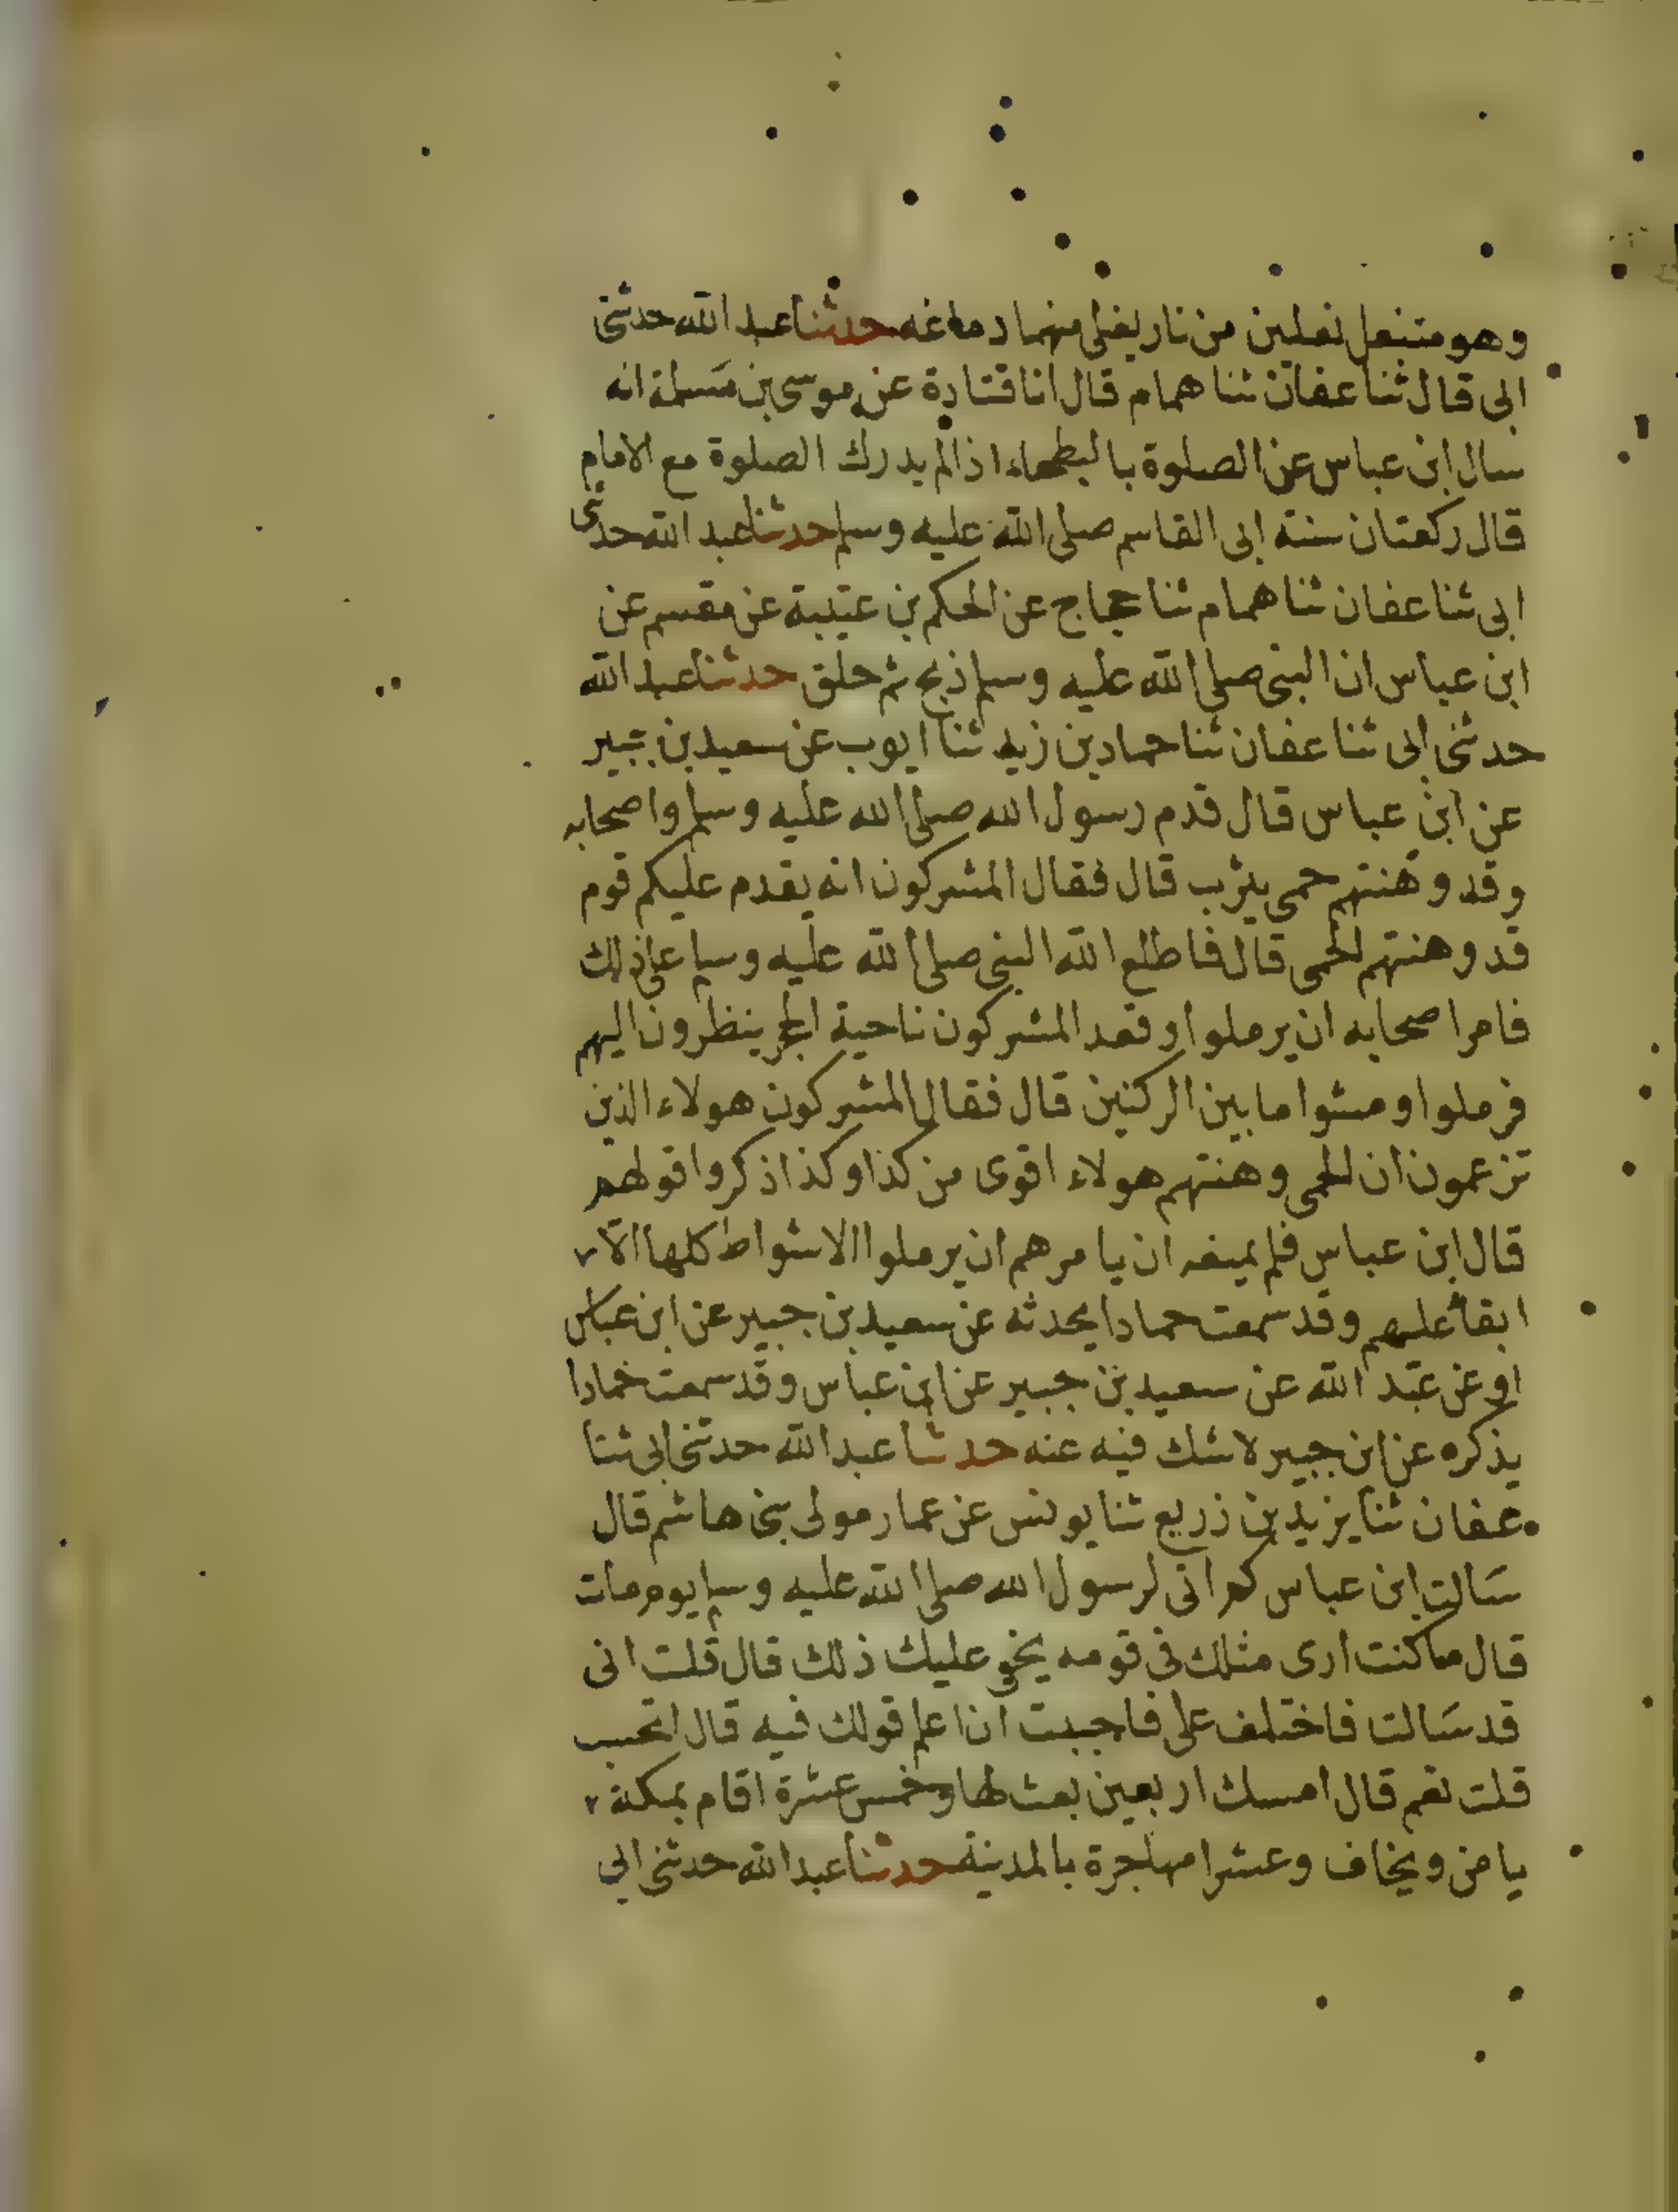 وهو متنعل نعلين من نار يغلى منهما دماغه حدثنا عبد الله حدثنى
ابى قال ثنا عفان ثنا همام قال انا قتادة عن موسى بن مسلمة انه
سال ابن عباس عن الصلوة بالبطحاء اذا لم يدرك الصلوة مع الامام
قال ركعتان سنة ابى القاسم صلى الله عليه وسلم حدثنا عبد الله حدثنى
ابى ثنا عفان ثنا همام ثنا حجاج عن الحكم بن عتيبة عن مقسم عن
ابن عباس ان النبى صلى الله عليه وسلم ذبح ثم حلق حدثنا عبد الله
حدثنى ابى ثنا عفان ثنا حماد بن زيد ثنا ايوب عن سعيد بن جبير
عن ابن عباس قال قدم رسول الله صلى الله عليه وسلم واصحابه
وقد وهنتهم حمى يثرب قال فقال المشركون انه يقدم عليكم قوم
قد وهنتهم الحمى قال فاطلع الله النبى صلى الله عليه وسلم على ذلك
فامر اصحابه ان يرملوا وقعد المشركون ناحية الحجر ينظرون اليهم
فرملوا ومشوا ما بين الركنين قال فقال المشركون هولاء الذين
تزعمون ان الحمى وهنتهم هولاء اقوى من كذا وكذا ذكروا قولهم
قال ابن عباس فلم يمنعه ان يامرهم ان يرملوا الاشواط كلها الا
ابقأ عليهم وقد سمعت حمادا يحدثه عن سعيد بن جبير عن ابن عباس
او عن عبد الله عن سعيد بن جبير عن ابن عباس وقد سمعت حمادا
يذكره عن ابن جبير لا شك فيه عنه حدثنا عبد الله حدثنى ابى ثنا
عفان ثنا يزيد بن زريع ثنا يونس عن عمار مولى بنى هاشم قال
سالت ابن عباس كم اتى لرسول الله صلى الله عليه وسلم يوم مات
قال ما كنت ارى مثلك فى قومه يخفى عليك ذلك قال قلت انى
قد سالت فاختلف على فاحببت ان اعلم قولك فيه قال اتحسب
قلت نعم قال امسك اربعين بعث لها وخمس عشرة اقام بمكة
يامن ويخاف وعشرا مهاجرة بالمدينة حدثنا عبد الله حدثنى ابى